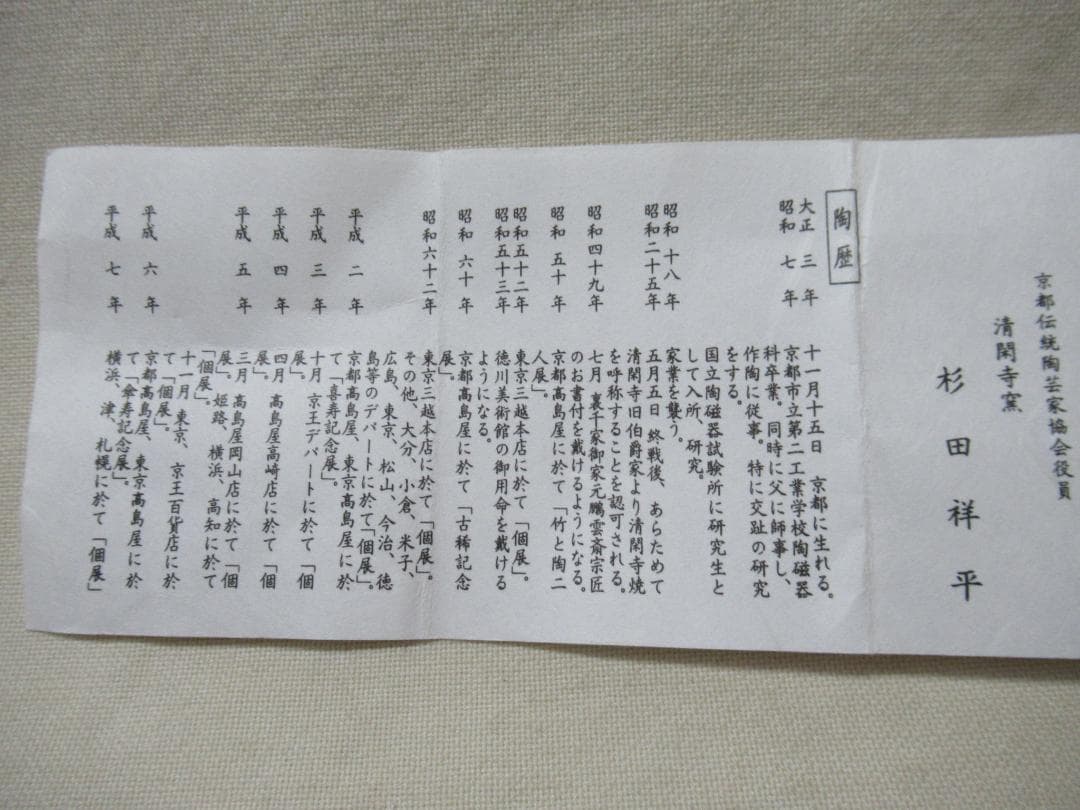 京都伝統陶芸家協会役員
清閑寺窯
杉田祥平
陶歴
大正 三 年 十一月十五日 京都に生れる。
昭和 七 年 京都市立第二工業学校陶磁器
科卒業。同時に父に師事し、
作陶に従事。特に交趾の研究
をする。
国立陶磁器試験所に研究生と
して入所、研究。
昭和 十八年 家業を襲う。
昭和二十五年 五月五日 終戦後、あらためて
清閑寺旧伯爵家より清閑寺焼
を呼称することを認可される。
昭和四十九年 七月 裏千家御家元鵬雲斎宗匠
のお書付を戴けるようになる。
昭和 五十年 京都高島屋に於て「竹と陶二
人展」。
昭和五十二年 東京三越本店に於て「個展」。
昭和五十三年 徳川美術館の御用命を戴ける
ようになる。
昭和 六十年 京都高島屋に於て「古稀記念
展」。
昭和六十二年 東京三越本店に於て「個展」。
その他、大分、小倉、米子、
広島、東京、松山、今治、徳
島等のデパートに於て「個展」。
平成 二 年 京都高島屋、東京高島屋に於
て「喜寿記念展」。
平成 三 年 十月 京王デパートに於て「個
展」。
平成 四 年 四月 高島屋高崎店に於て「個
展」。
平成 五 年 三月 高島屋岡山店に於て「個
展」。姫路、横浜、高知に於て
「個展」。
十一月 東京、京王百貨店に於
て「個展」。
平成 六 年 京都高島屋、東京高島屋に於
て「傘寿記念展」。
平成 七 年 横浜、津、札幌に於て「個展」